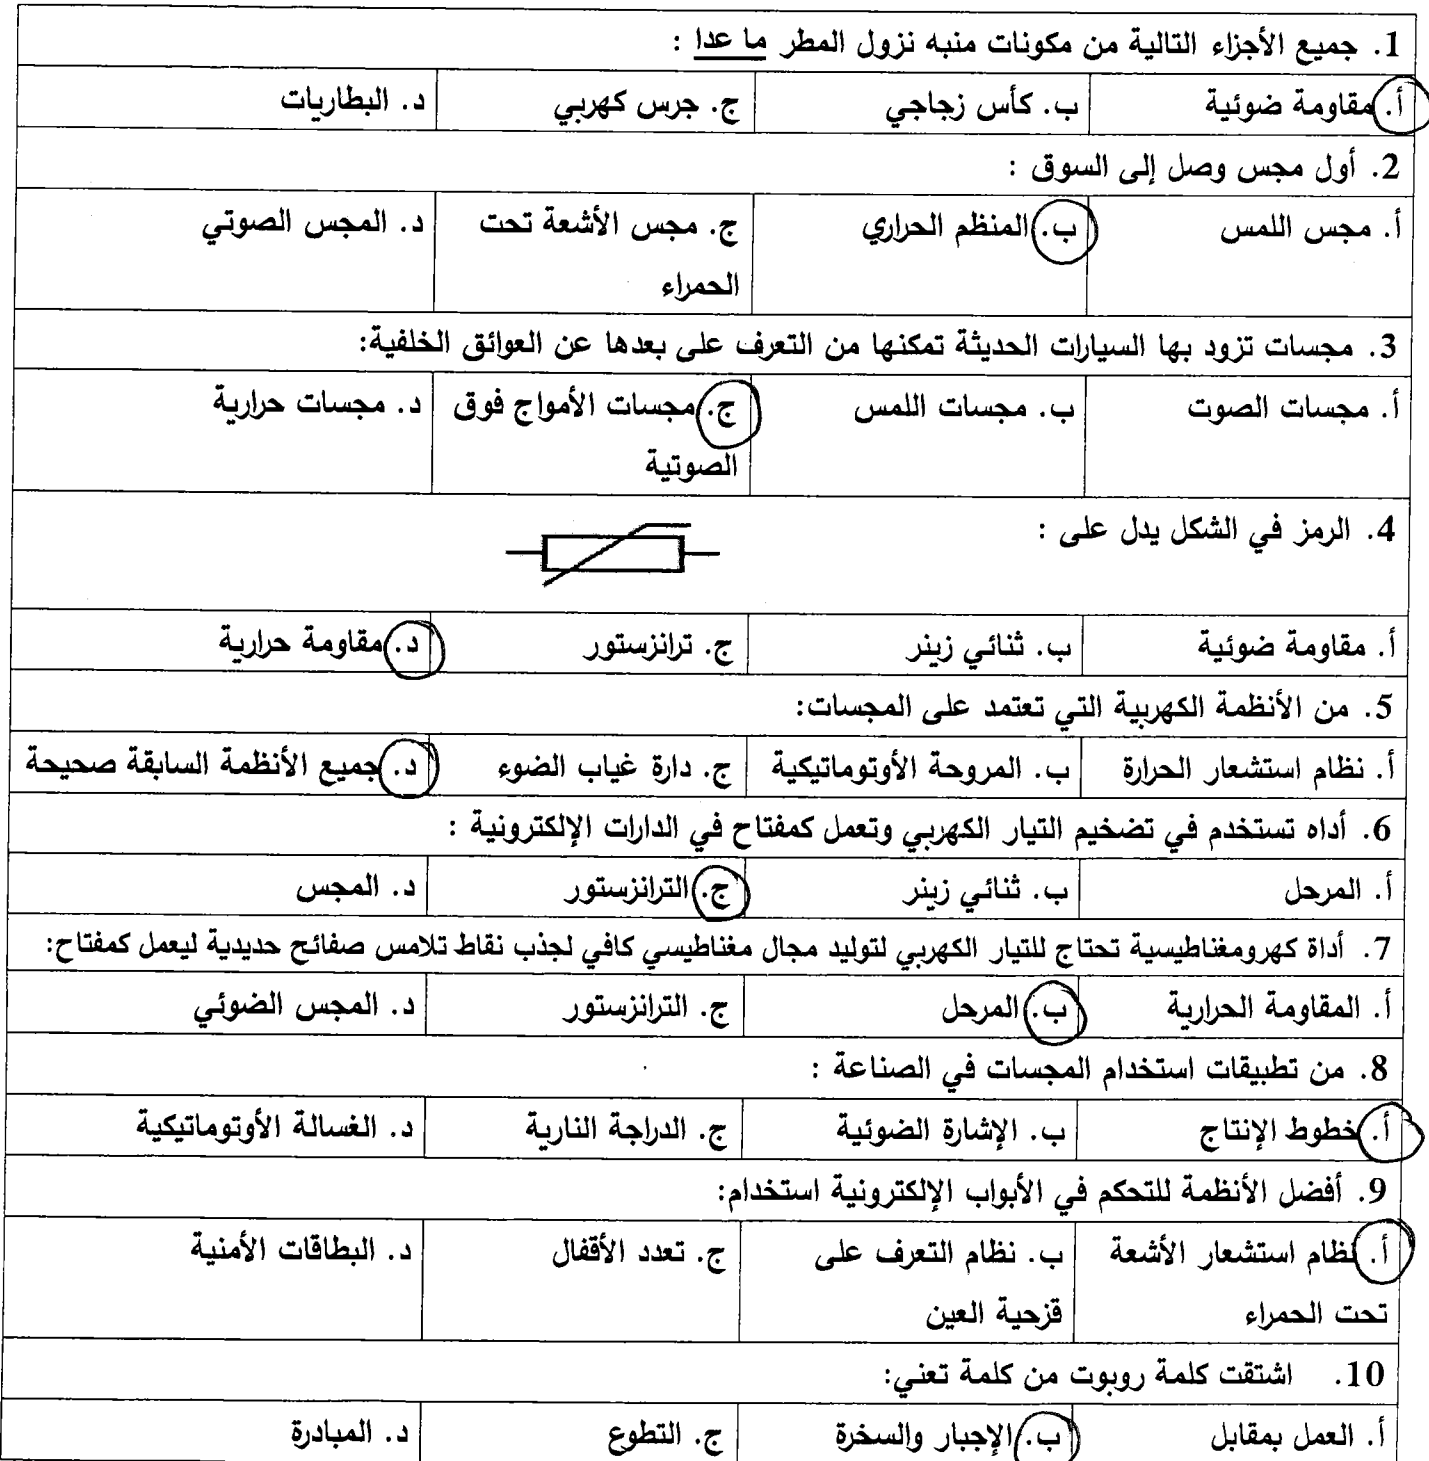 1. جميع الأجزاء التالية من مكونات منبه نزول المطر ما عدا :
أ. مقاومة ضوئية ب. كأس زجاجي ج. جرس كهربي د. البطاريات
2. أول مجس وصل إلى السوق :
أ. مجس اللمس ب. المنظم الحراري ج. مجس الأشعة تحت د. المجس الصوتي
الحمراء
3. مجسات تزود بها السيارات الحديثة تمكنها من التعرف على بعدها عن العوائق الخلفية:
أ. مجسات الصوت ب. مجسات اللمس ج. مجسات الأمواج فوق د. مجسات حرارية
الصوتية
4. الرمز في الشكل يدل على :
أ. مقاومة ضوئية ب. ثنائي زينر ج. ترانزستور د. مقاومة حرارية
5. من الأنظمة الكهربية التي تعتمد على المجسات:
أ. نظام استشعار الحرارة ب. المروحة الأوتوماتيكية ج. دارة غياب الضوء د. جميع الأنظمة السابقة صحيحة
6. أداه تستخدم في تضخيم التيار الكهربي وتعمل كمفتاح في الدارات الإلكترونية :
أ. المرحل ب. ثنائي زينر ج. الترانزستور د. المجس
7. أداة كهرومغناطيسية تحتاج للتيار الكهربي لتوليد مجال مغناطيسي كافي لجذب نقاط تلامس صفائح حديدية ليعمل كمفتاح:
أ. المقاومة الحرارية ب. المرحل ج. الترانزستور د. المجس الضوئي
8. من تطبيقات استخدام المجسات في الصناعة :
أ. خطوط الإنتاج ب. الإشارة الضوئية ج. الدراجة النارية د. الغسالة الأوتوماتيكية
9. أفضل الأنظمة للتحكم في الأبواب الإلكترونية استخدام:
أ. نظام استشعار الأشعة ب. نظام التعرف على ج. تعدد الأقفال د. البطاقات الأمنية
تحت الحمراء قزحية العين
10. اشتقت كلمة روبوت من كلمة تعني:
أ. العمل بمقابل ب. الإجبار والسخرة ج. التطوع د. المبادرة